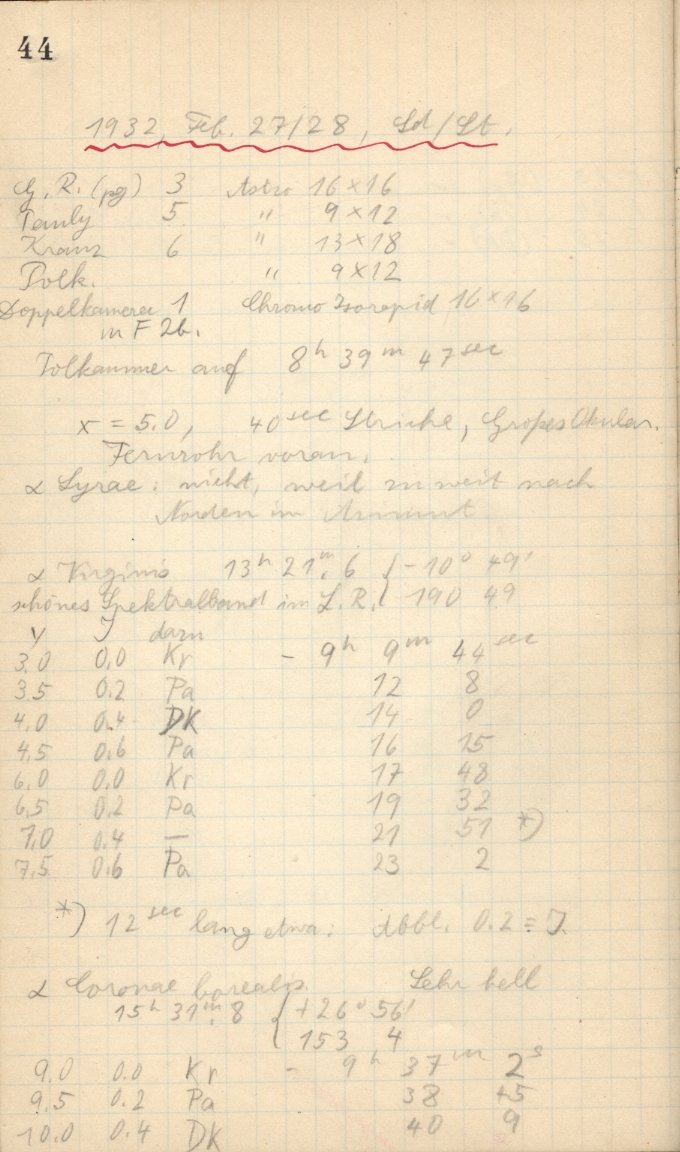 44
1932, Feb. 27/28, Sd/St.
G. R. (pg) 3 Astro 16×16
Pauly 5 " 9×12
Kranz 6 " 13×18
Polk. " 9×12
Doppelkamera 1 Chromo Isorapid 16×16
in F 2b.
Polkammer auf 8h 39m 47sec
x = 5.0, 40sec Striche, Großes Okular.
Fernrohr voran.
α Lyrae: nicht, weil zu weit nach
Norden im Azimut
α Virginis 13h 21m.6 { -10° 49'
schönes Spektralband im L.R. { 190 49
y J dazu
3.0 0.0 Kr - 9h 9m 44sec
3.5 0.2 Pa 12 8
4.0 0.4 DK 14 0
4.5 0.6 Pa 16 15
6.0 0.0 Kr 17 48
6.5 0.2 Pa 19 32
7.0 0.4 — 21 51 *)
7.5 0.6 Pa 23 2
*) 12sec lang etwa: Abbl. 0.2 = J
α Coronae borealis. Sehr hell
15h 31m.8 { +26° 56'
{ 153 4
9.0 0.0 Kr - 9h 37m 2s
9.5 0.2 Pa 38 45
10.0 0.4 DK 40 9